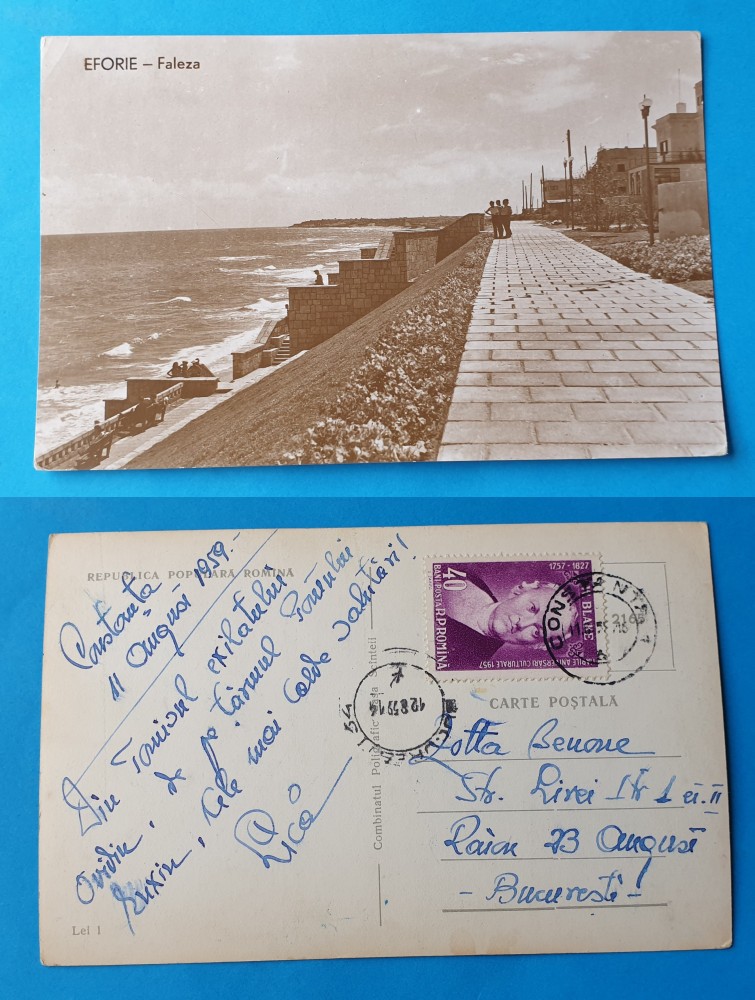 EFORIE – Faleza
REPUBLICA POPULARA ROMÎNA
Constanța
11 August 1959.-
Din Tomisul exilatului
Ovidiu, de pe țărmul Pontului
Euxin, cele mai calde salutări!
Lică
Lei 1
Combinatul Poligrafic Casa Scînteii
1757 - 1827
BLAKE
40
BANI POSTA R.P.ROMINA
MARILE ANIVERSARI CULTURALE 1957
CONSTANTA 1
12.8.59.14
CARTE POȘTALĂ
Lotta Benone
Str. Lirei Nr 1 et. II
Raion 23 August
- București!